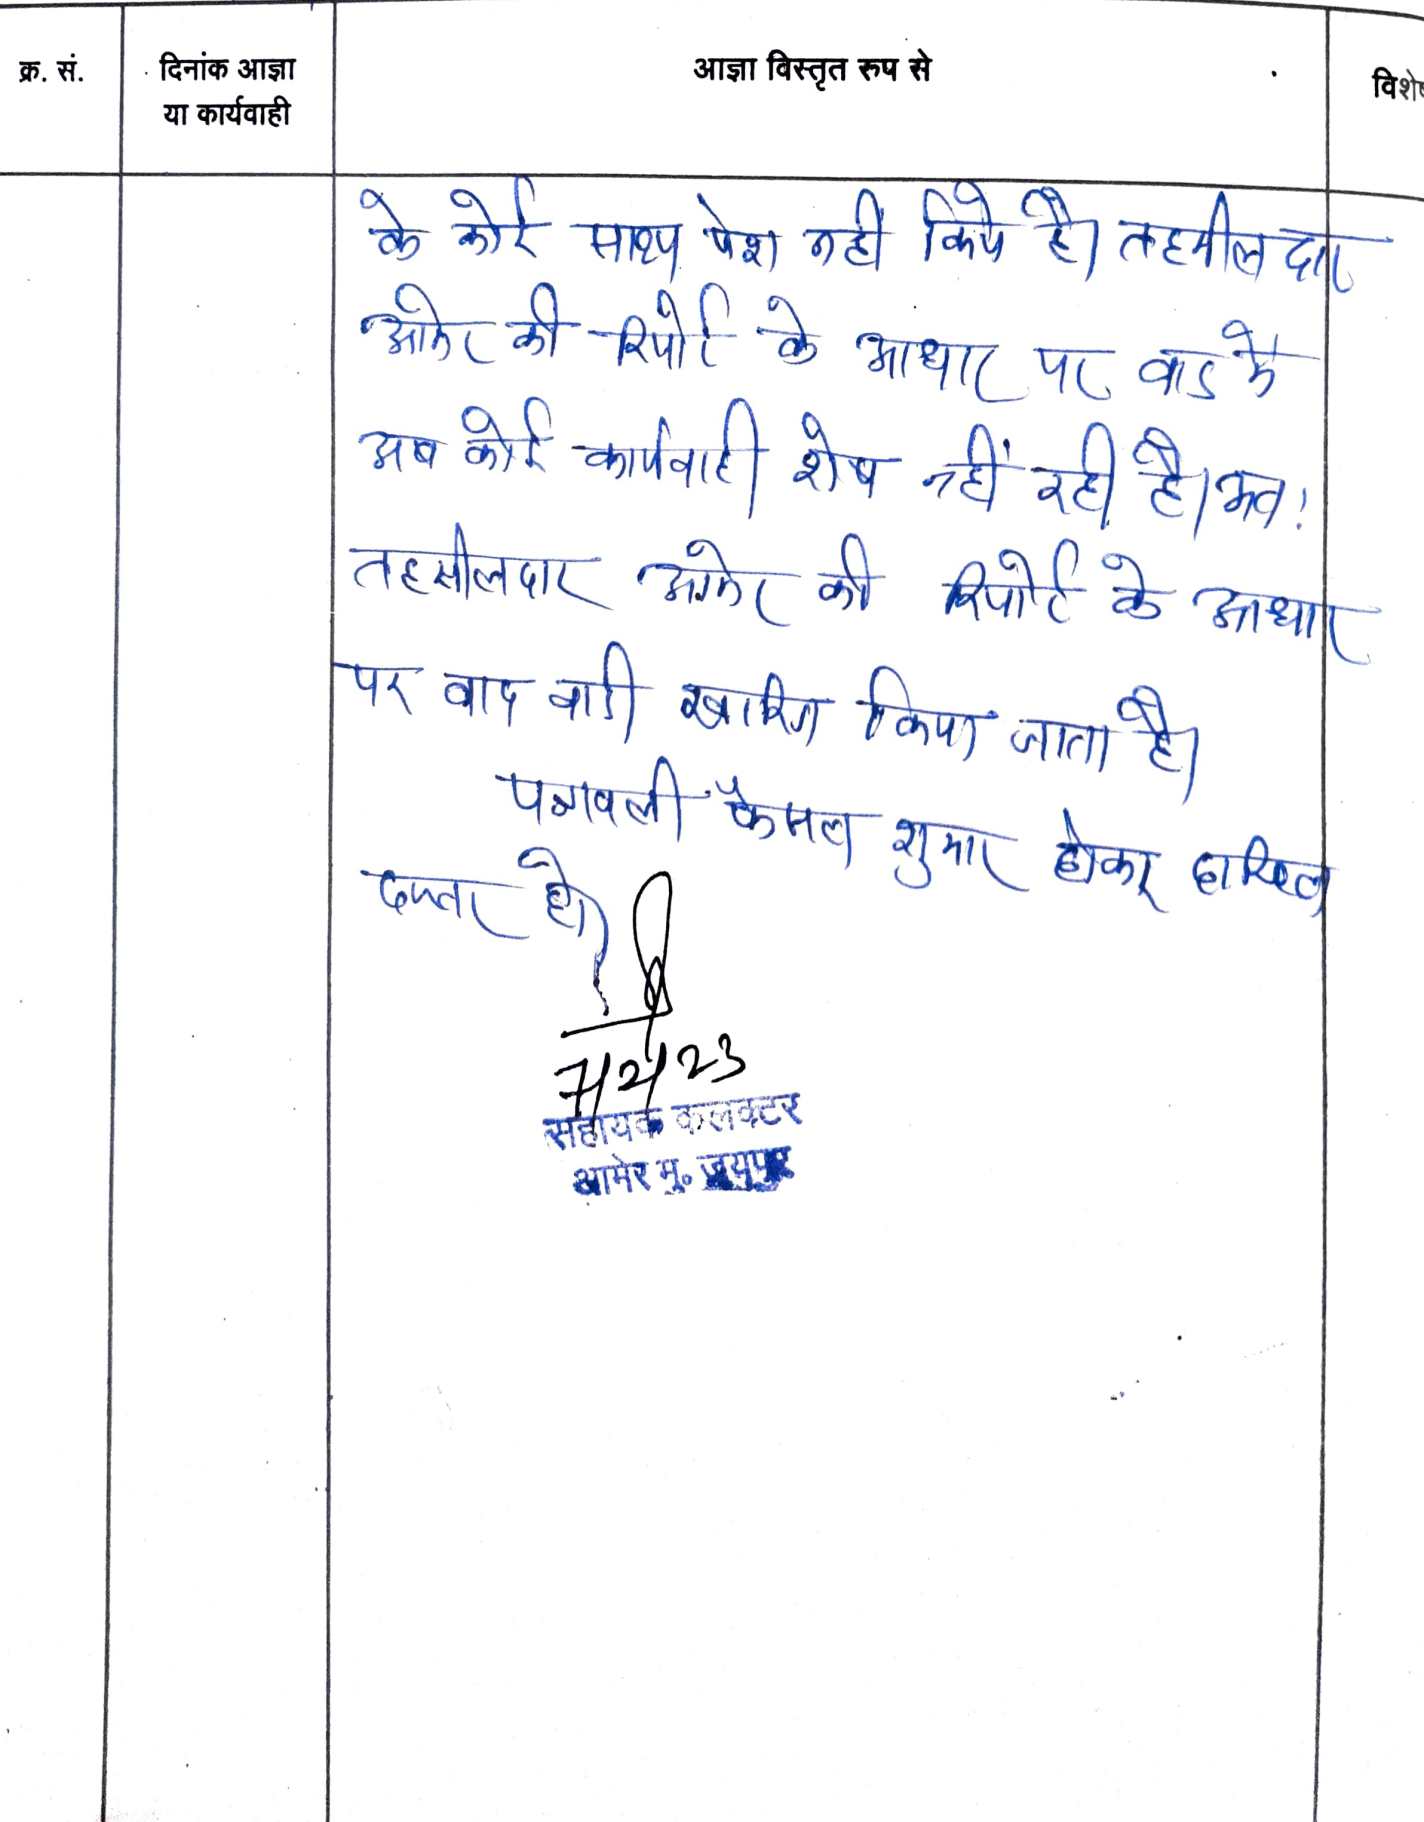 क्र. सं.
दिनांक आज्ञा
या कार्यवाही
आज्ञा विस्तृत रुप से
विशेष
के कोई साक्ष्य पेश नहीं किये है। तहसीलदार
आमेर की रिपोर्ट के आधार पर वाद में
अब कोई कार्यवाही शेष नहीं रही है। अतः
तहसीलदार आमेर की रिपोर्ट के आधार
पर वाद वादी खारिज किया जाता है।
पत्रावली फैसल शुमार होकर दाखिल
दफ्तर हो।
7/2/23
सहायक कलक्टर
आमेर मु. जयपुर